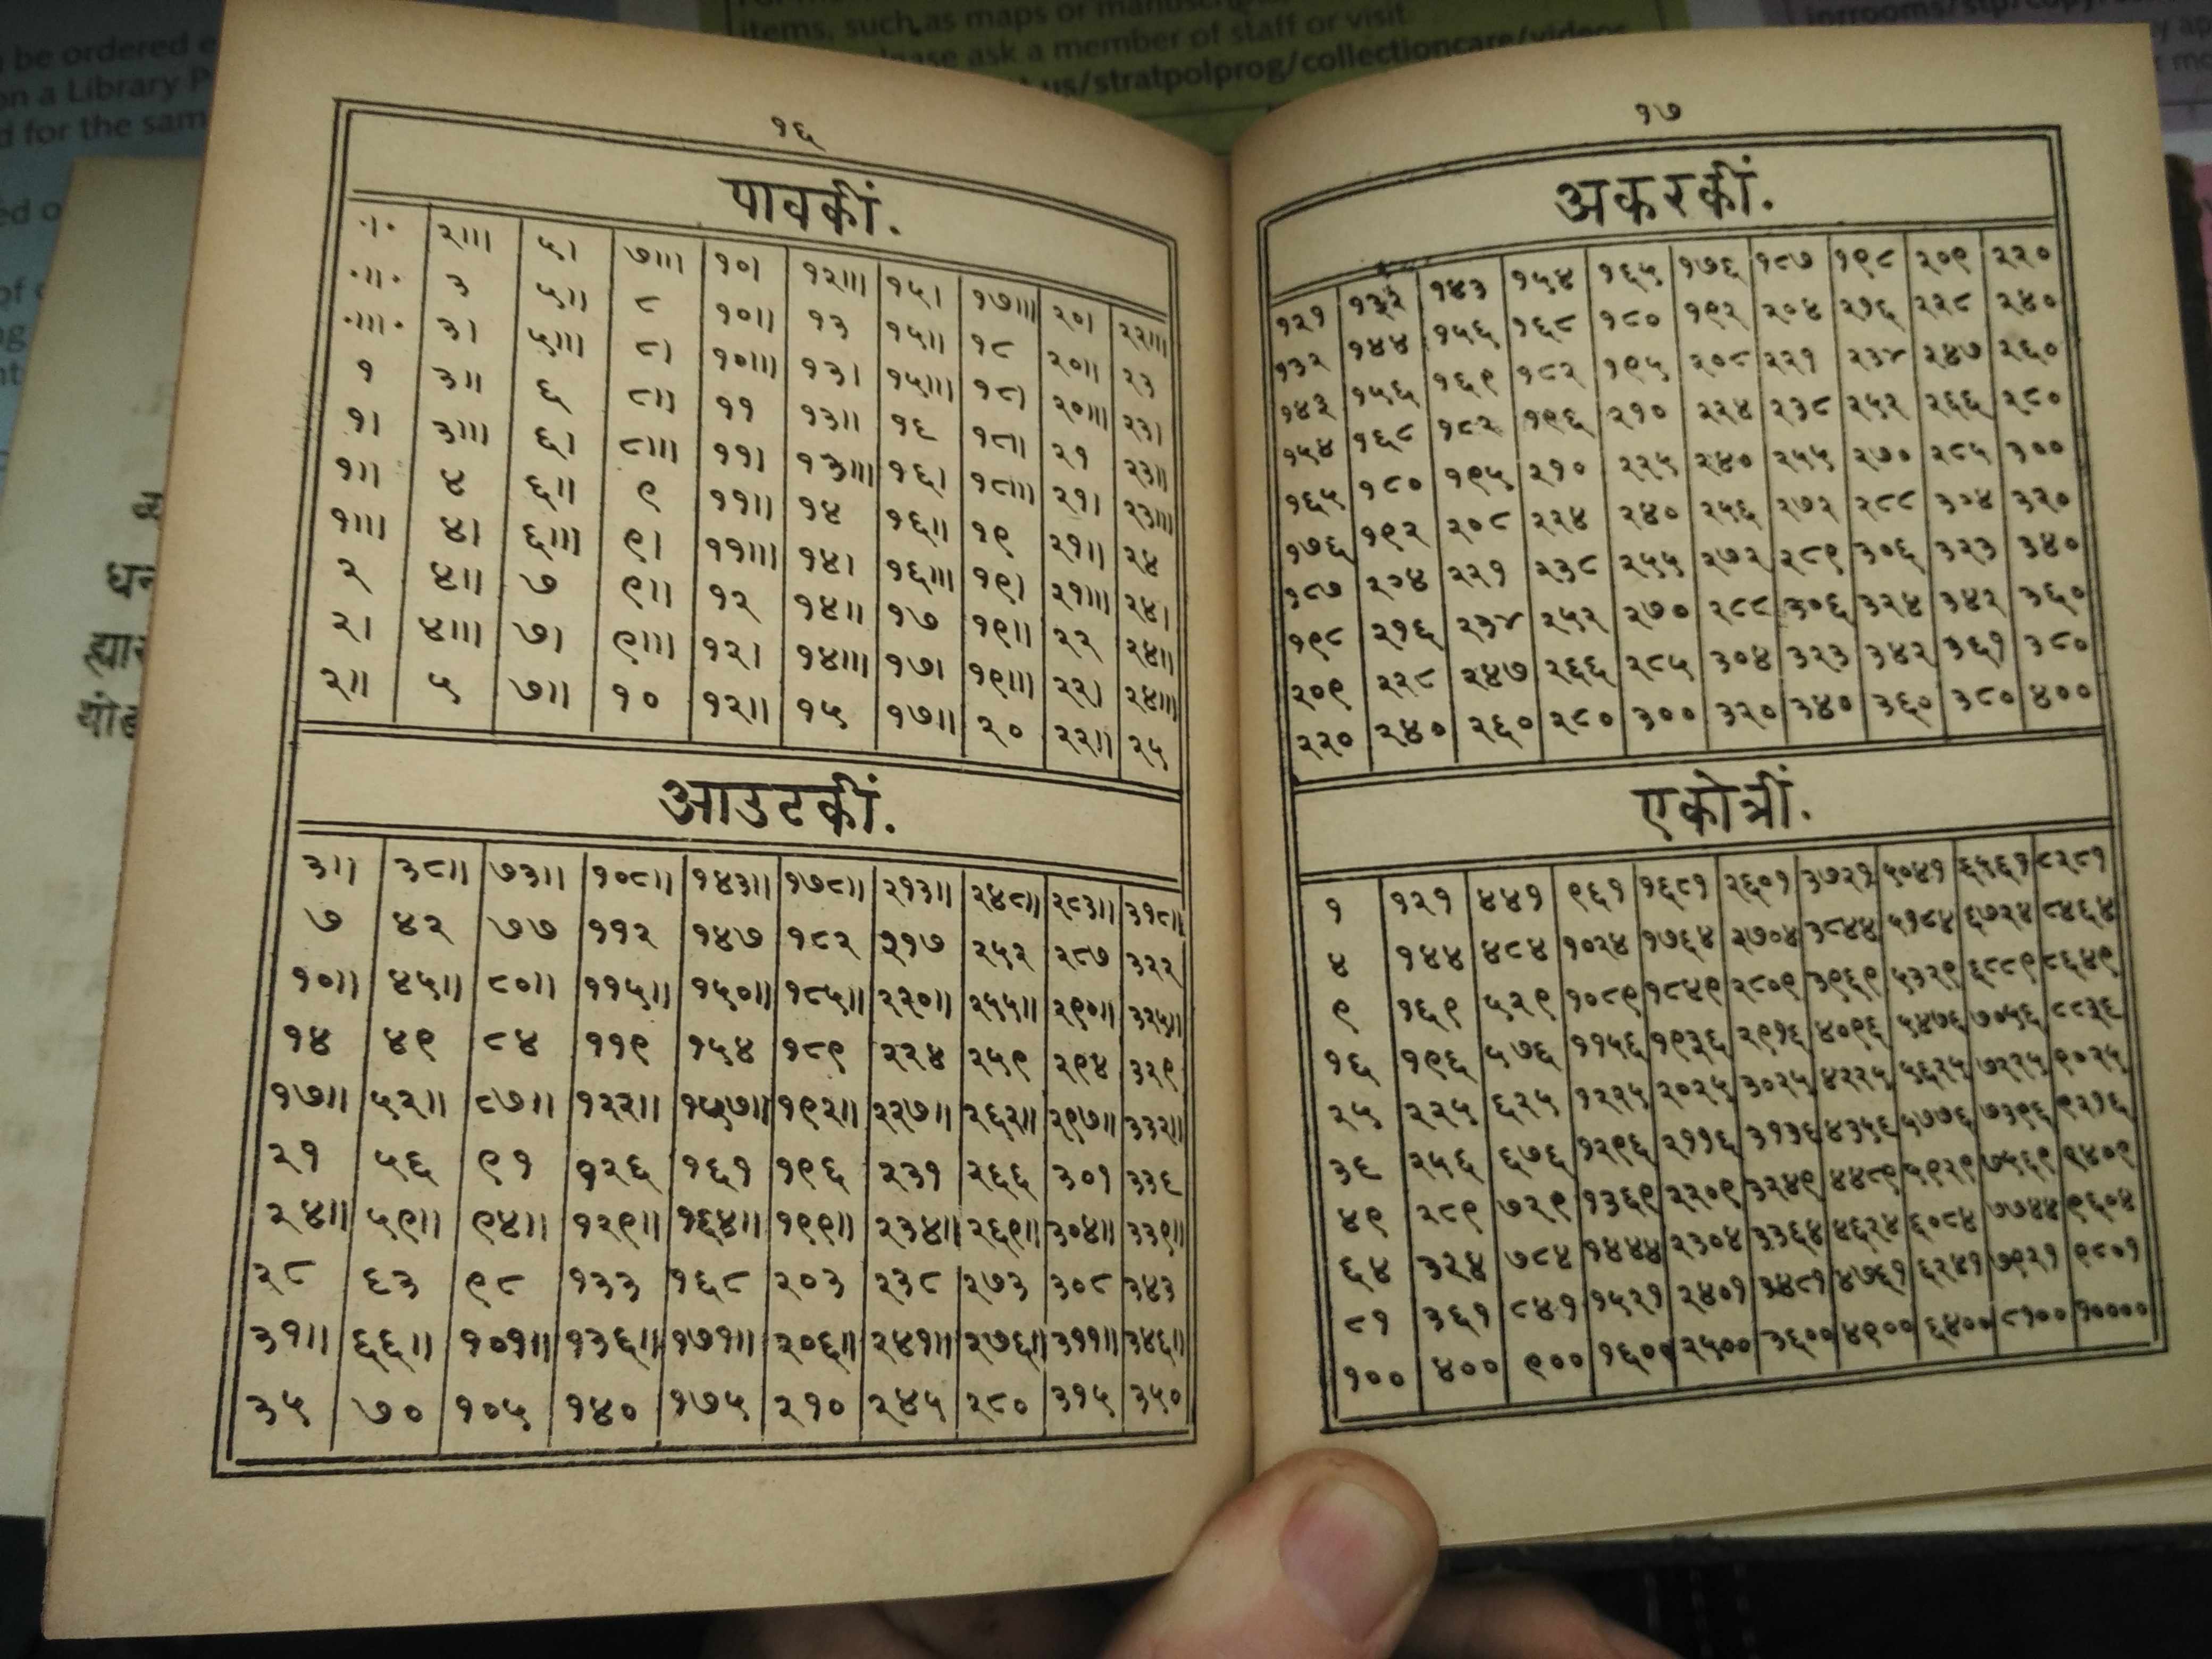 be ordered
on a Library
d for the sam
items, such as maps or manuscripts
please ask a member of staff or visit
us/stratpolprog/collectioncare/videos
१६
पावकीं.
·।· २॥। ५। ७॥। १०। १२॥। १५। १७॥। २०। २२॥।
·॥· ३ ५॥ ८ १०॥ १३ १५॥ १८ २०॥ २३
·॥।· ३। ५॥। ८। १०॥। १३। १५॥। १८। २०॥। २३।
१ ३॥ ६ ८॥ ११ १३॥ १६ १८॥ २१ २३॥
१। ३॥। ६। ८॥। ११। १३॥। १६। १८॥। २१। २३॥।
१॥ ४ ६॥ ९ ११॥ १४ १६॥ १९ २१॥ २४
१॥। ४। ६॥। ९। ११॥। १४। १६॥। १९। २१॥। २४।
२ ४॥ ७ ९॥ १२ १४॥ १७ १९॥ २२ २४॥
२। ४॥। ७। ९॥। १२। १४॥। १७। १९॥। २२। २४॥।
२॥ ५ ७॥ १० १२॥ १५ १७॥ २० २२॥ २५
आउटकीं.
३॥ ३८॥ ७३॥ १०८॥ १४३॥ १७८॥ २१३॥ २४८॥ २८३॥ ३१८॥
७ ४२ ७७ ११२ १४७ १८२ २१७ २५२ २८७ ३२२
१०॥ ४५॥ ८०॥ ११५॥ १५०॥ १८५॥ २२०॥ २५५॥ २९०॥ ३२५॥
१४ ४९ ८४ ११९ १५४ १८९ २२४ २५९ २९४ ३२९
१७॥ ५२॥ ८७॥ १२२॥ १५७॥ १९२॥ २२७॥ २६२॥ २९७॥ ३३२॥
२१ ५६ ९१ १२६ १६१ १९६ २३१ २६६ ३०१ ३३६
२४॥ ५९॥ ९४॥ १२९॥ १६४॥ १९९॥ २३४॥ २६९॥ ३०४॥ ३३९॥
२८ ६३ ९८ १३३ १६८ २०३ २३८ २७३ ३०८ ३४३
३१॥ ६६॥ १०१॥ १३६॥ १७१॥ २०६॥ २४१॥ २७६॥ ३११॥ ३४६॥
३५ ७० १०५ १४० १७५ २१० २४५ २८० ३१५ ३५०
१७
अकरकीं.
१२१ १३२ १४३ १५४ १६५ १७६ १८७ १९८ २०९ २२०
१३२ १४४ १५६ १६८ १८० १९२ २०४ २१६ २२८ २४०
१४३ १५६ १६९ १८२ १९५ २०८ २२१ २३४ २४७ २६०
१५४ १६८ १८२ १९६ २१० २२४ २३८ २५२ २६६ २८०
१६५ १८० १९५ २१० २२५ २४० २५५ २७० २८५ ३००
१७६ १९२ २०८ २२४ २४० २५६ २७२ २८८ ३०४ ३२०
१८७ २०४ २२१ २३८ २५५ २७२ २८९ ३०६ ३२३ ३४०
१९८ २१६ २३४ २५२ २७० २८८ ३०६ ३२४ ३४२ ३६०
२०९ २२८ २४७ २६६ २८५ ३०४ ३२३ ३४२ ३६१ ३८०
२२० २४० २६० २८० ३०० ३२० ३४० ३६० ३८० ४००
एकोत्रीं.
१ १२१ ४४१ ९६१ १६८१ २६०१ ३७२१ ५०४१ ६५६१ ८२८१
४ १४४ ४८४ १०२४ १७६४ २७०४ ३८४४ ५१८४ ६७२४ ८४६४
९ १६९ ५२९ १०८९ १८४९ २८०९ ३९६९ ५३२९ ६८८९ ८६४९
१६ १९६ ५७६ ११५६ १९३६ २९१६ ४०९६ ५४७६ ७०५६ ८८३६
२५ २२५ ६२५ १२२५ २०२५ ३०२५ ४२२५ ५६२५ ७२२५ ९०२५
३६ २५६ ६७६ १२९६ २११६ ३१३६ ४३५६ ५७७६ ७३९६ ९२१६
४९ २८९ ७२९ १३६९ २२०९ ३२४९ ४४८९ ५९२९ ७५६९ ९४०९
६४ ३२४ ७८४ १४४४ २३०४ ३३६४ ४६२४ ६०८४ ७७४४ ९६०४
८१ ३६१ ८४१ १५२१ २४०१ ३४८१ ४७६१ ६२४१ ७९२१ ९८०१
१०० ४०० ९०० १६०० २५०० ३६०० ४९०० ६४०० ८१०० १००००